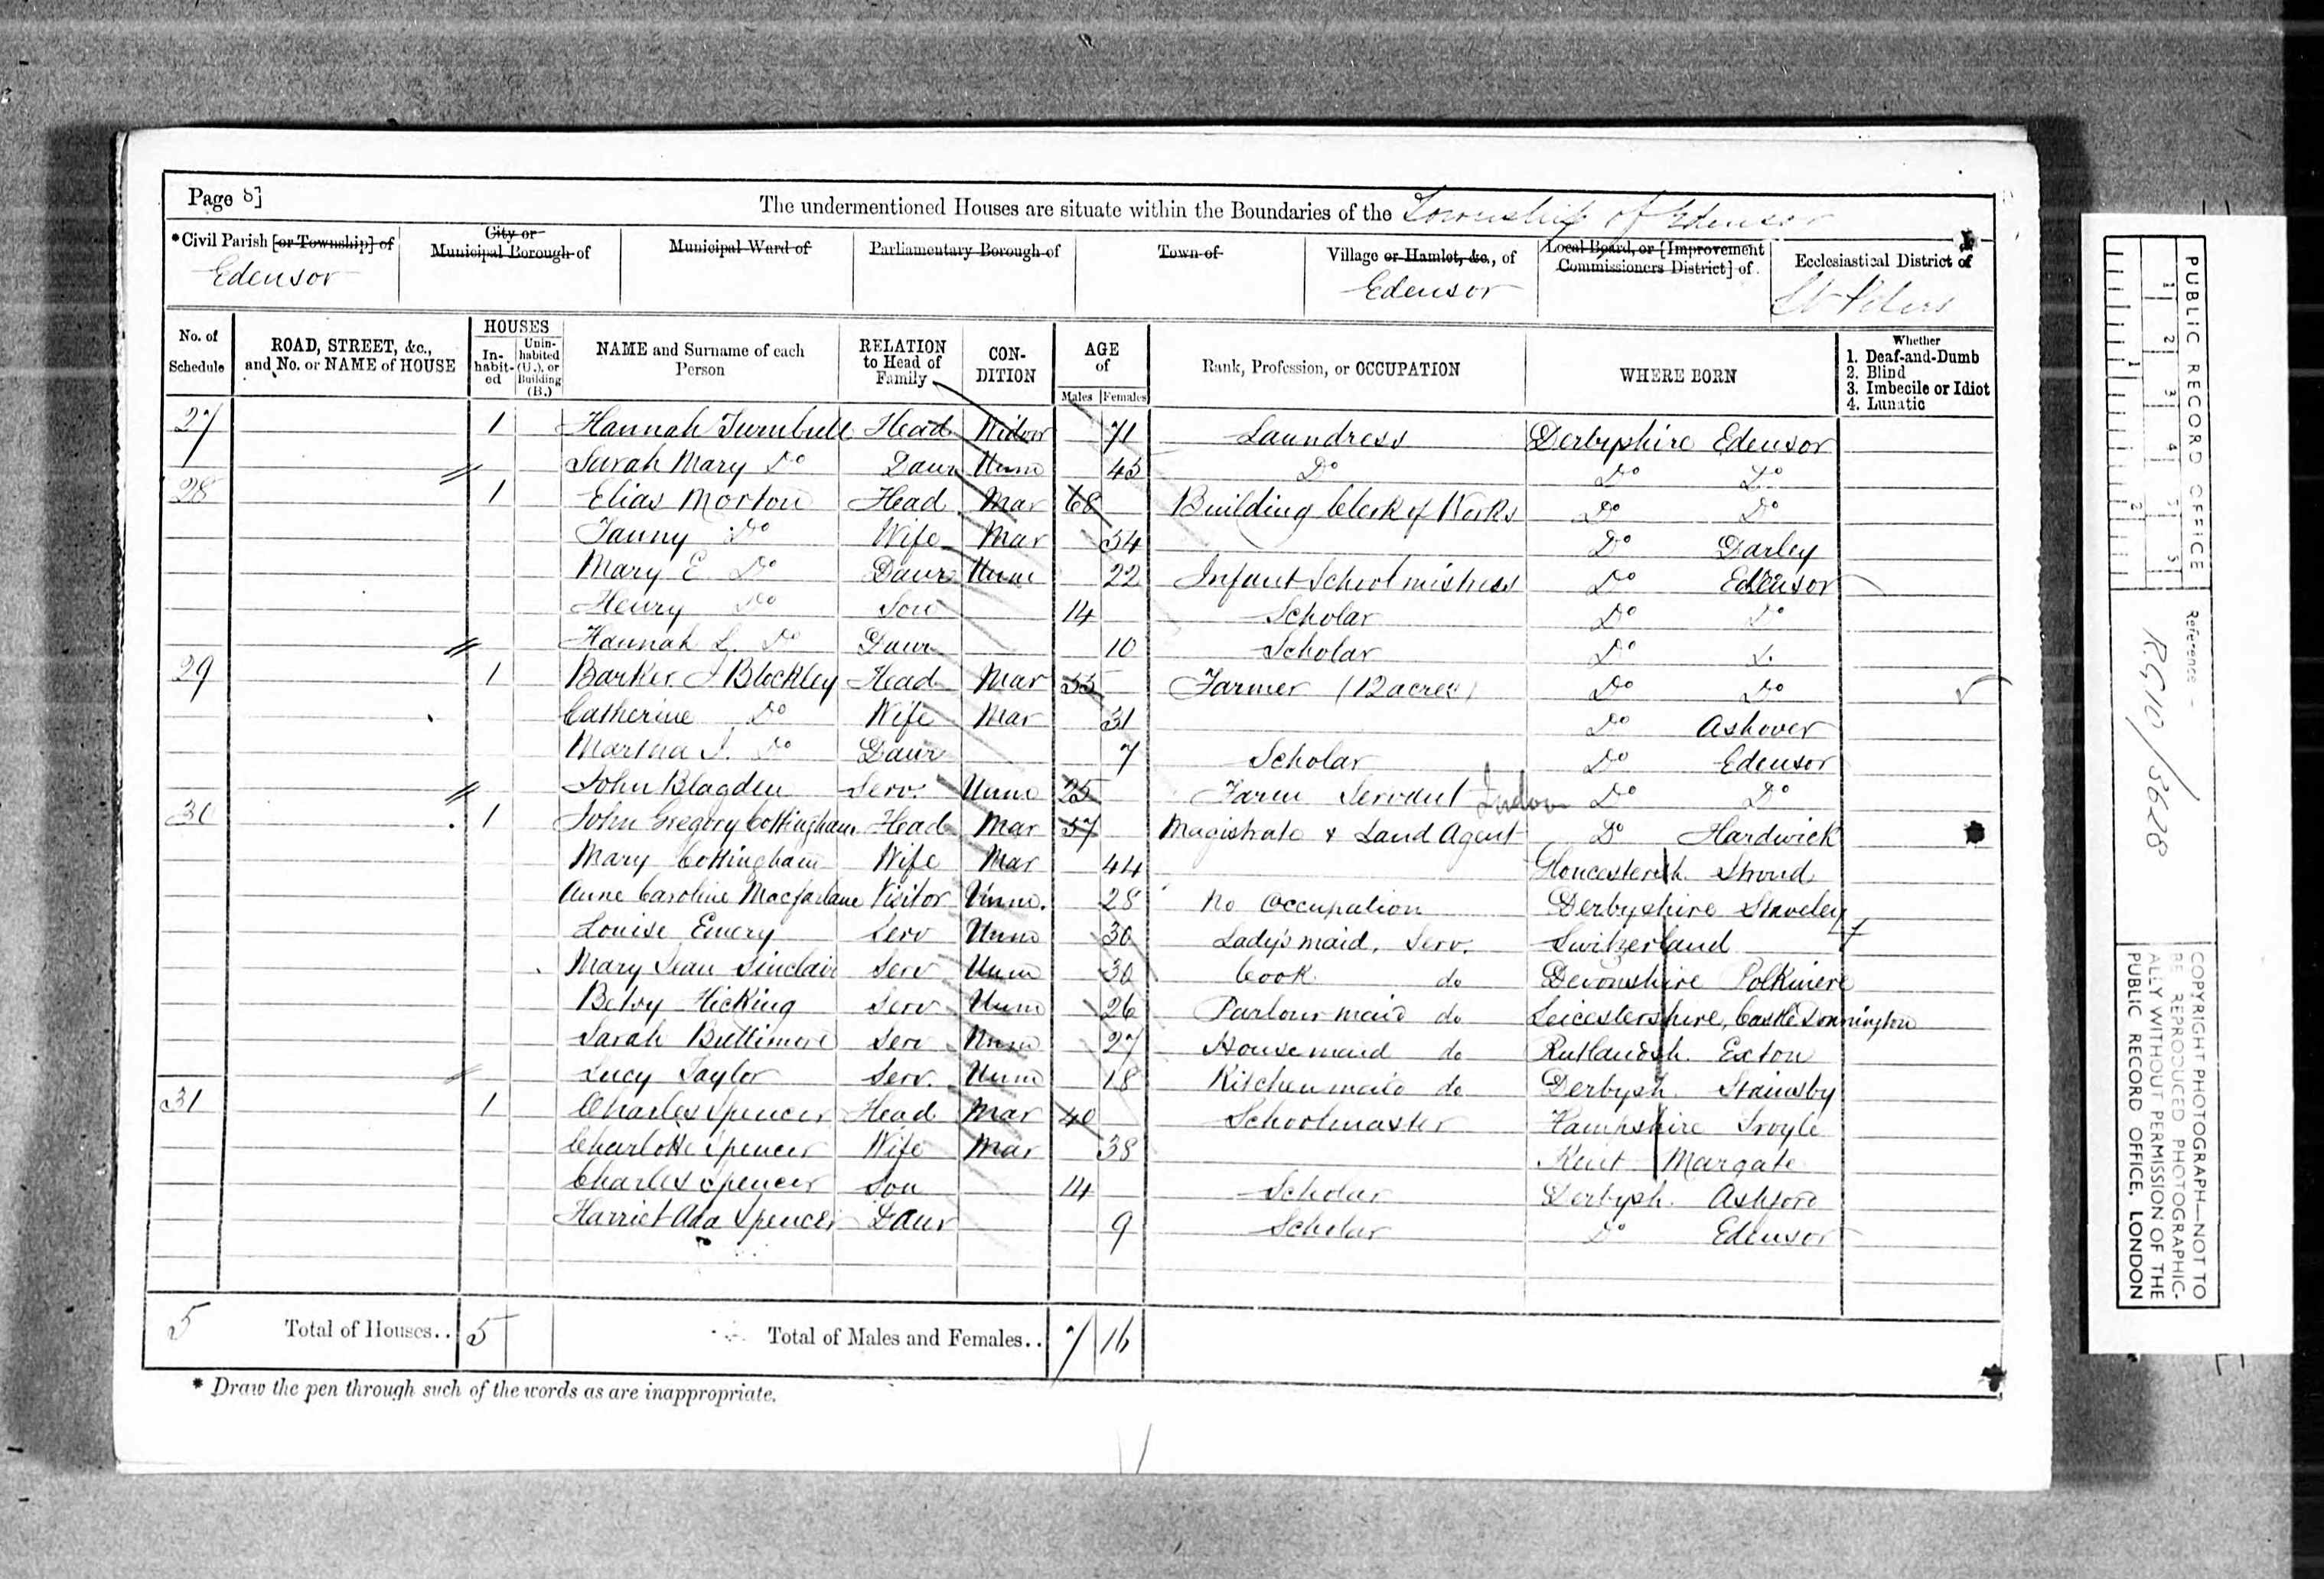 Page 8]
The undermentioned Houses are situate within the Boundaries of the Township of Edensor
*Civil Parish [or Township] of Edensor
City or Municipal Borough of
Municipal Ward of
Parliamentary Borough of
Town of
Village or Hamlet, &c., of Edensor
Local Board, or [Improvement Commissioners District] of
Ecclesiastical District of St Peters
No. of Schedule
ROAD, STREET, &c., and No. or NAME of HOUSE
HOUSES
In-habit-ed
Unin-habited (U.), or Building (B.)
NAME and Surname of each Person
RELATION to Head of Family
CON-DITION
AGE of
Males Females
Rank, Profession, or OCCUPATION
WHERE BORN
Whether
1. Deaf-and-Dumb
2. Blind
3. Imbecile or Idiot
4. Lunatic
27 1 Hannah Turnbull Head Widow 71 Laundress Derbyshire Edensor
Sarah Mary Do Daur Unm 45 Do Do Do
28 1 Elias Morton Head Mar 68 Building Clerk of Works Do Do
Fanny Do Wife Mar 54 Do Darley
Mary E. Do Daur Unm 22 Infant School mistress Do Edensor
Henry Do Son 14 Scholar Do Do
Hannah L. Do Daur 10 Scholar Do Do
29 1 Barker J Blockley Head Mar 35 Farmer (12 acres) Do Do
Catherine Do Wife Mar 31 Do Ashover
Martha J. Do Daur 7 Scholar Do Edensor
John Blagden Serv. Unm 25 Farm Servant Indoor Do Do
30 1 John Gregory Cottingham Head Mar 57 Magistrate & Land Agent Do Hardwick
Mary Cottingham Wife Mar 44 Gloucestersh. Stroud
Anne Caroline Macfarlane Visitor Unm. 28 No Occupation Derbyshire Staveley
Louise Emery Serv Unm 30 Lady's maid, Serv. Switzerland
Mary Jean Sinclair Serv Unm 30 Cook do Devonshire
Betsy Hicking Serv Unm 26 Parlour maid do Leicestershire, Castle Donnington
Sarah Buttimore Serv Unm 27 House maid do Rutlandsh. Exton
Lucy Taylor Serv. Unm 18 Kitchen maid do Derbysh. Stainsby
31 1 Charles Spencer Head Mar 40 Schoolmaster Hampshire Froyle
Charlotte Spencer Wife Mar 38 Kent Margate
Charles Spencer Son 14 Scholar Derbysh. Ashford
Harriet Ada Spencer Daur 9 Scholar Do Edensor
5 Total of Houses.. 5 Total of Males and Females.. 7 16
* Draw the pen through such of the words as are inappropriate.
PUBLIC RECORD OFFICE
1 2 3 4 5
1 2
Reference:-
RG 10/3628
COPYRIGHT PHOTOGRAPH—NOT TO BE REPRODUCED PHOTOGRAPHIC-ALLY WITHOUT PERMISSION OF THE PUBLIC RECORD OFFICE, LONDON